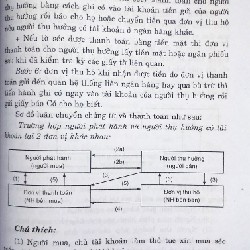 thu hưởng bằng cách ghi có vào tài khoản tiền gửi của người
thụ hưởng rồi báo cho họ hoặc chuyển tiền qua đơn vị thu hộ
nếu người thụ hưởng có tài khoản ở ngân hàng khác.
+ Nếu tờ séc được thanh toán bằng tiền mặt thì đơn vị
thanh toán cho người thụ hưởng lấy tiền mặt hoặc ngân phiếu
sau khi đã kiểm tra kỹ các giấy tờ liên quan.
Bước 6: đơn vị thu hộ khi nhận được tiền do đơn vị thanh
toán gửi đến qua hệ thống liên ngân hàng, hay qua bù trừ thì
tiến hành ghi có ngay vào tài khoản của người thụ hưởng rồi
gửi giấy báo Có cho họ biết.
Sơ đồ luân chuyển chứng từ và thanh toán như sau:
Trường hợp người phát hành và người thụ hưởng có tài
khoản tại 2 đơn vị khác nhau:
(2a)
Người phát hành
(người mua)
Người thụ hưởng
(người bán)
(2b)
(1)
(5)
(3)
(6)
Đơn vị thanh toán
(NH bên mua)
Đơn vị thu hộ
(NH bên bán)
(4)
Chú thích:
(1) Người mua, chủ tài khoản làm thủ tục xin mua séc